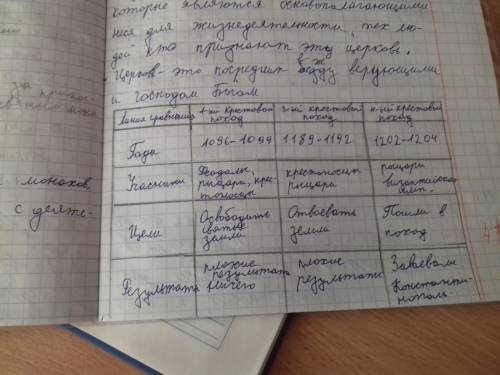 которые являются основополагающими
ниея для жизнедеятельности, тех лю-
дей кто признают эту церковь.
Церковь - это посредник между верующими
и Господом Богом
Линия сравнения 1-ый крестовый поход 3-ий крестовый поход 4-ый крестовый поход
Года 1096-1099 1189-1192 1202-1204
Участники Феодалы, рыцари, кре-
стоносцы крестоносцы рыцари рыцари византийская имп.
Цели Освободить святые земли Отвоевать земли Пошли в поход
Результаты плохие результаты ничего плохие результаты Завоевали Константи-
нополь.
монахов,
с деяте-